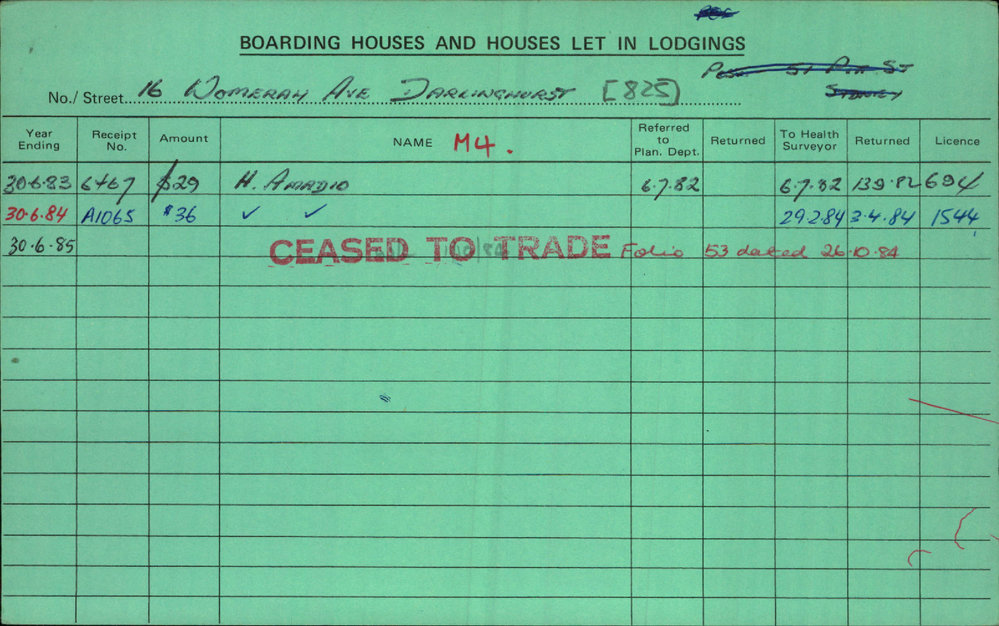 BOARDING HOUSES AND HOUSES LET IN LODGINGS
No./ Street 16 Womerah Ave Darlinghurst [825]
Year Ending Receipt No. Amount NAME M4. Referred to Plan. Dept. Returned To Health Surveyor Returned Licence
30·6·83 6467 $29 H. Amadio 6·7·82 6·7·82 13·9·82 694
30·6·84 A1065 $36 ✓ ✓ 29284 3·4·84 1544
30·6·85 CEASED TO TRADE Folio 53 dated 26·10·84